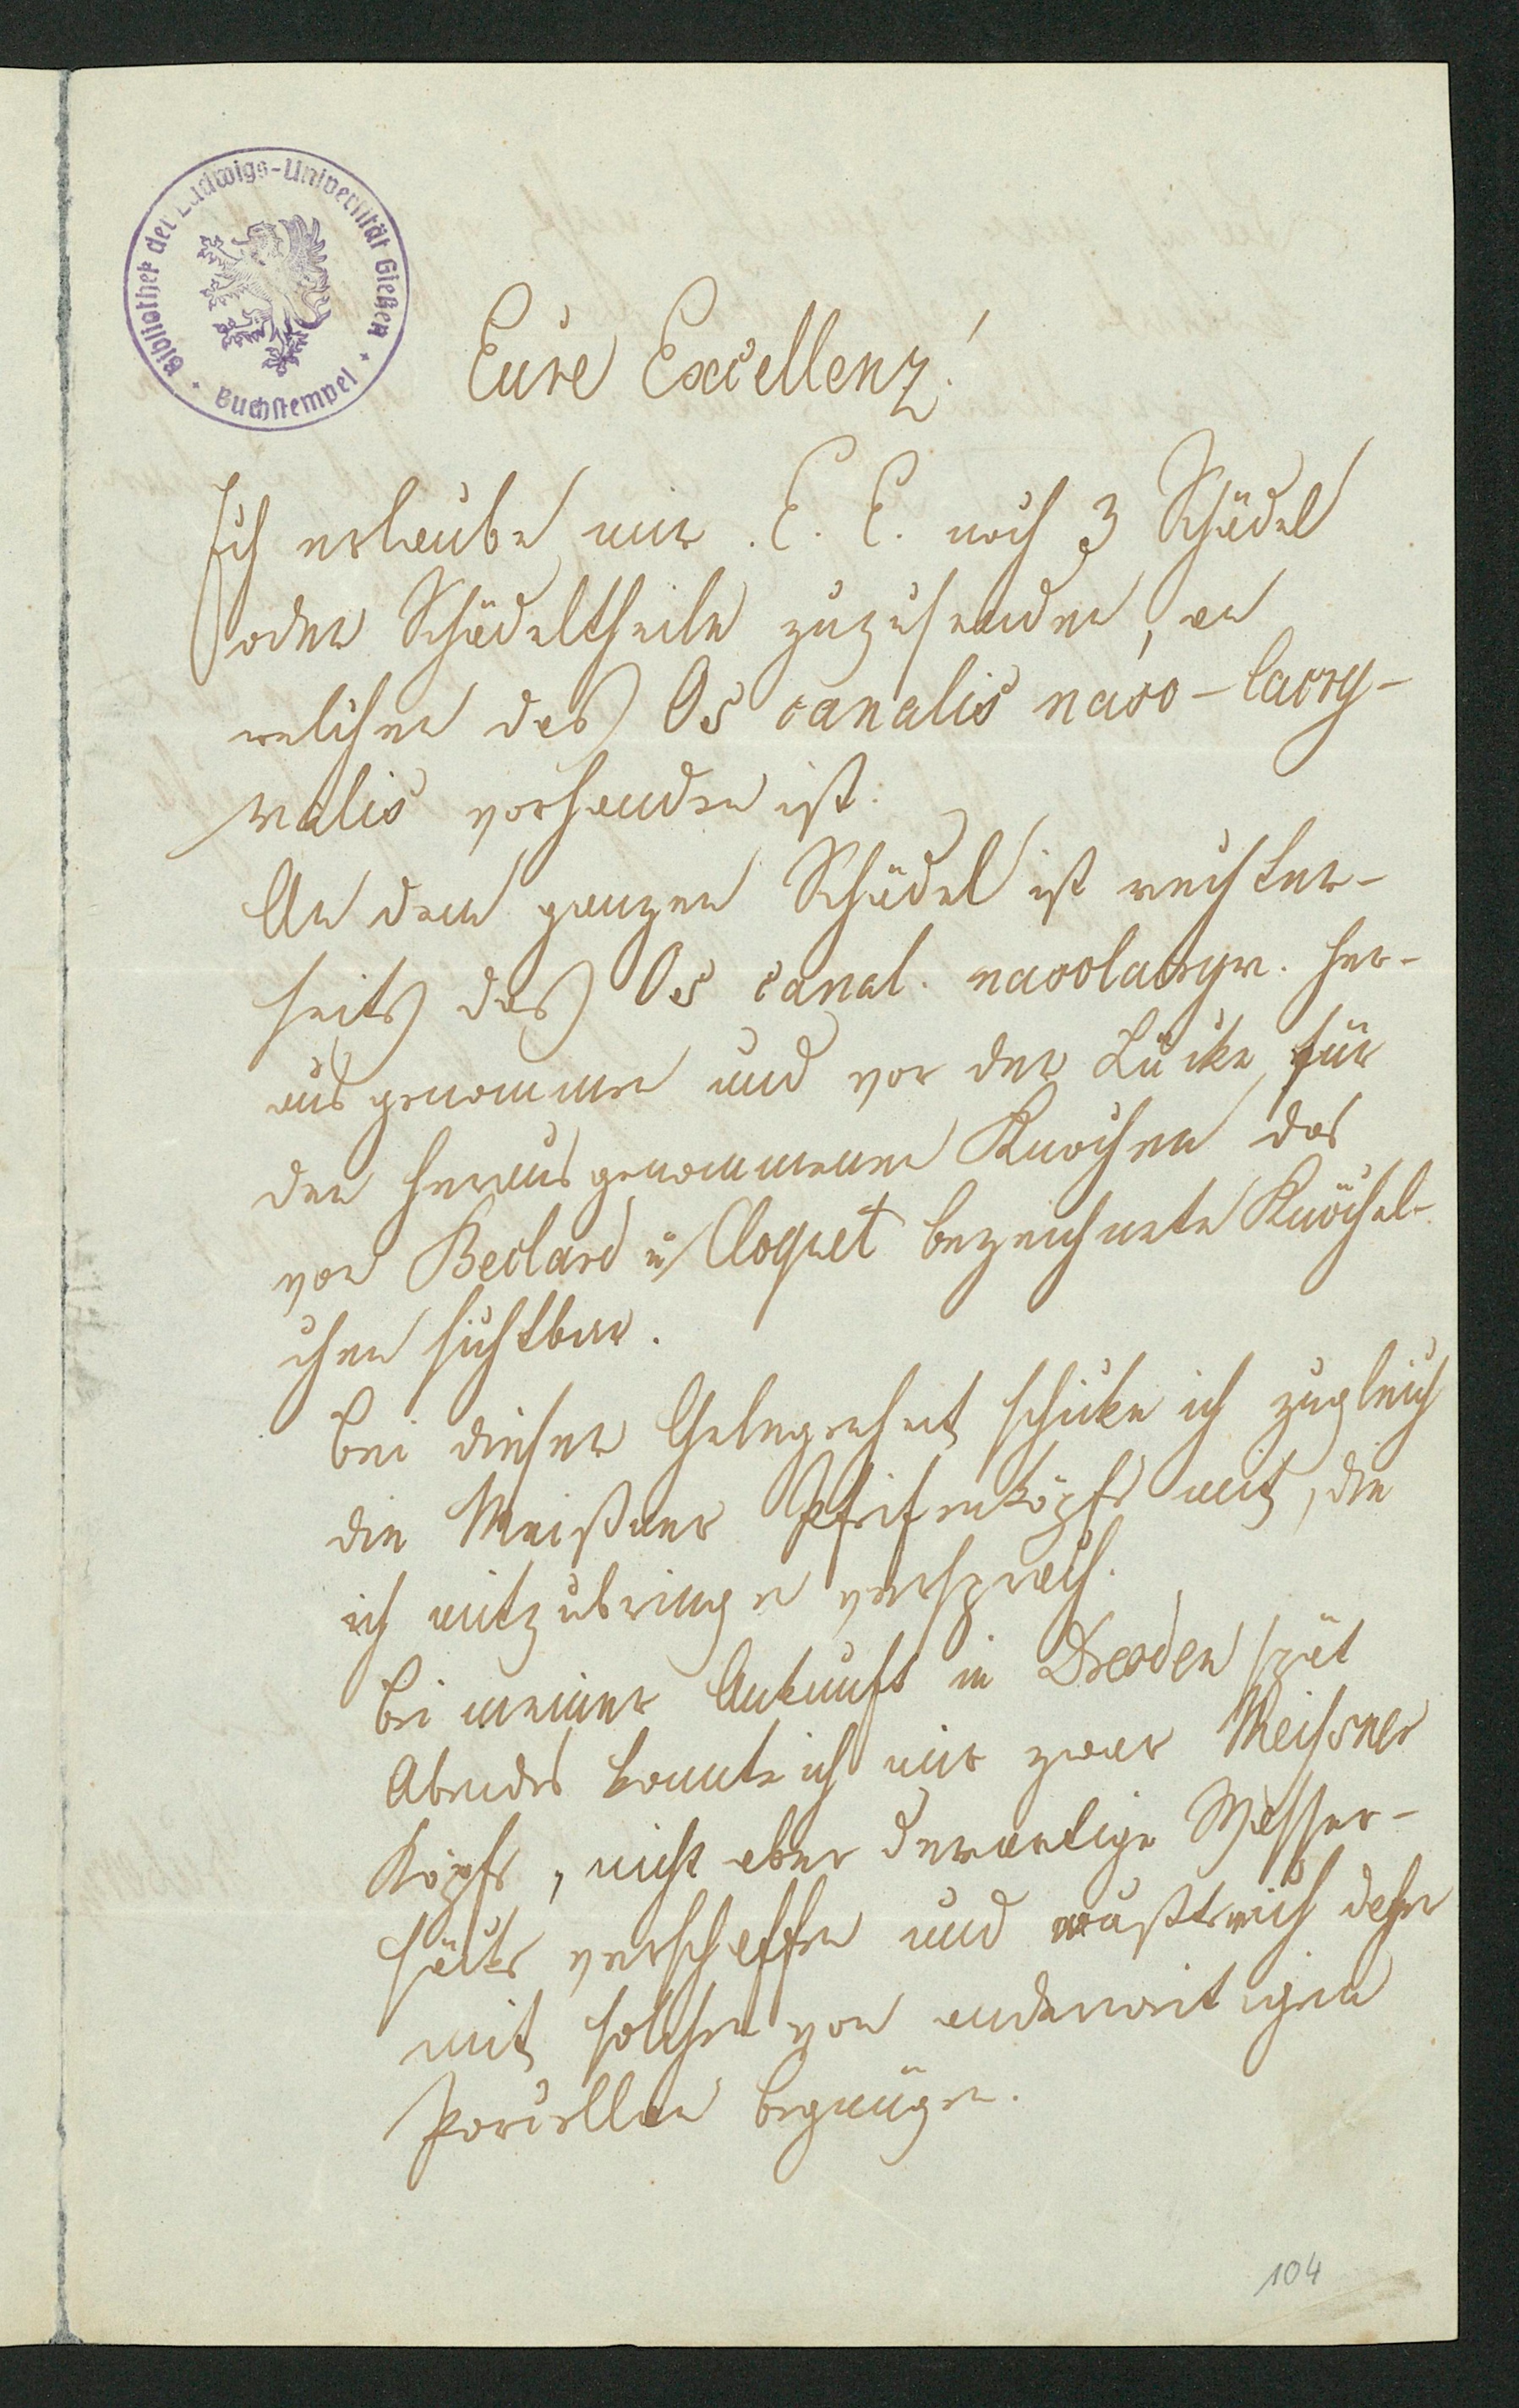 Bibliothek der Ludwigs-Universität Gießen
Buchstempel
Eure Excellenz!
Ich erlaube mir E. E. noch 3 Schädel
oder Schädeltheile zuzusenden, an
welchen das Os canalis naso-lacry-
malis vorhanden ist.
An dem ganzen Schädel ist rechter-
seits das Os canal. nasolacrym. her-
ausgenommen und vor der Lücke für
den herausgenommenen Knochen das
von Beclard u Cloquet bezeichnete Knöchel-
chen sichtbar.
Bei dieser Gelegenheit schicke ich zugleich
die Meißner Pfeifenköpfe mit, die
ich mitzubringen versprach.
Bei meiner Ankunft in Dresden spät
Abends konnte ich mir zwar Meissner
Köpfe, nicht aber derartige Wasser-
säcke verschaffen und mußte mich daher
mit solchen von anderweitigem
Porcellan begnügen.
104